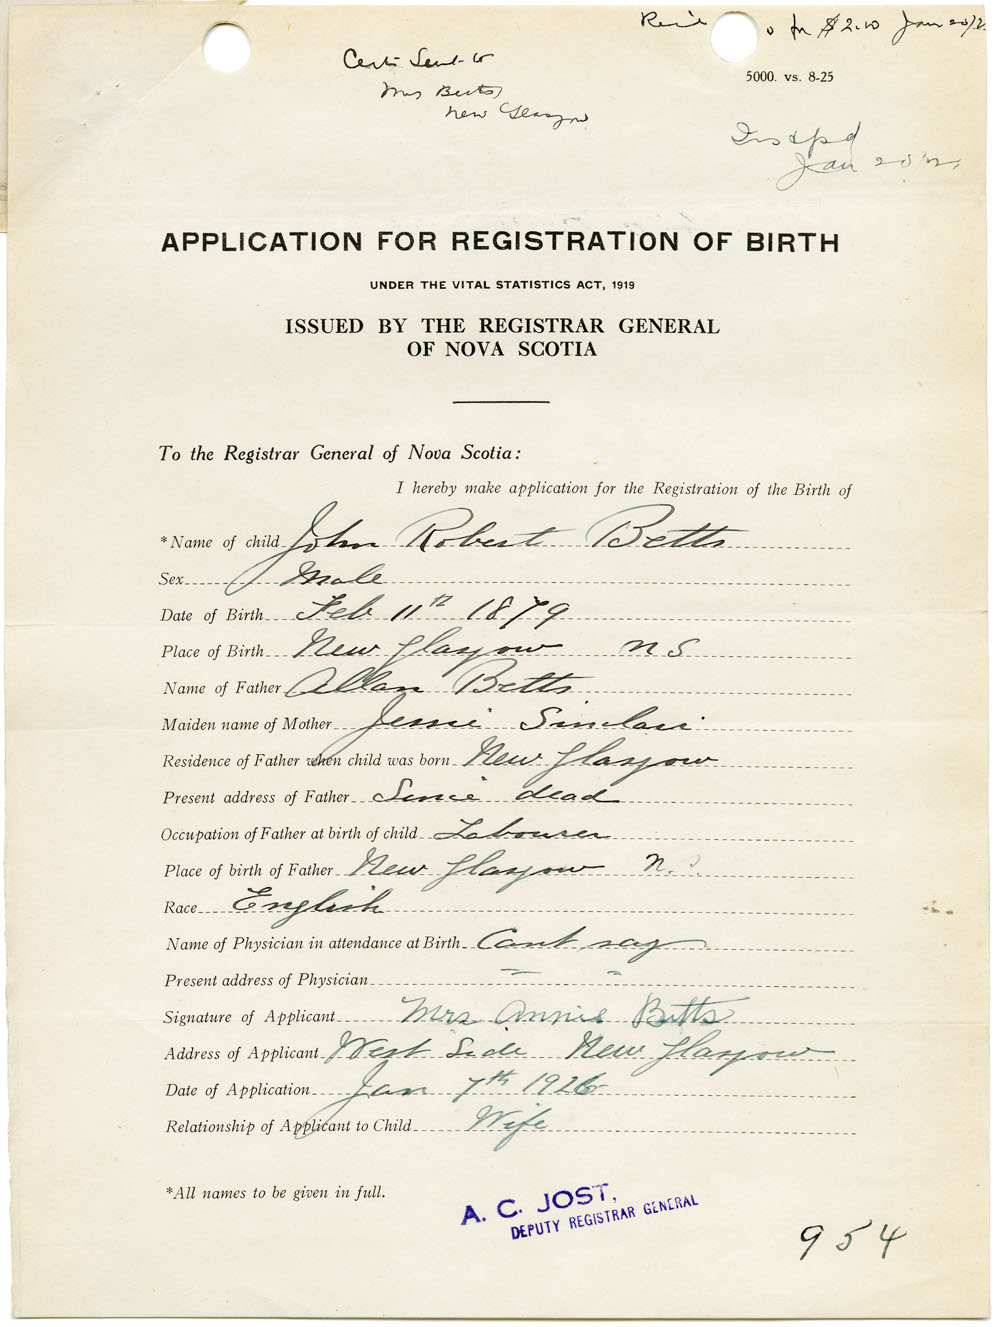 for $2.00 Jan 20/2
Cert Sent to
Mrs Betts
New Glasgow
5000. vs. 8-25
Jan 20
APPLICATION FOR REGISTRATION OF BIRTH
UNDER THE VITAL STATISTICS ACT, 1919
ISSUED BY THE REGISTRAR GENERAL
OF NOVA SCOTIA
To the Registrar General of Nova Scotia:
I hereby make application for the Registration of the Birth of
*Name of child John Robert Betts
Sex Male
Date of Birth Feb 11th 1879
Place of Birth New Glasgow N S
Name of Father Allan Betts
Maiden name of Mother Jessie Sinclair
Residence of Father when child was born New Glasgow
Present address of Father Since dead
Occupation of Father at birth of child Labourer
Place of birth of Father New Glasgow N.S.
Race English
Name of Physician in attendance at Birth Cant say
Present address of Physician " "
Signature of Applicant Mrs Annie Betts
Address of Applicant West Side New Glasgow
Date of Application Jan 7th 1926
Relationship of Applicant to Child Wife
*All names to be given in full.
A. C. JOST,
DEPUTY REGISTRAR GENERAL
954